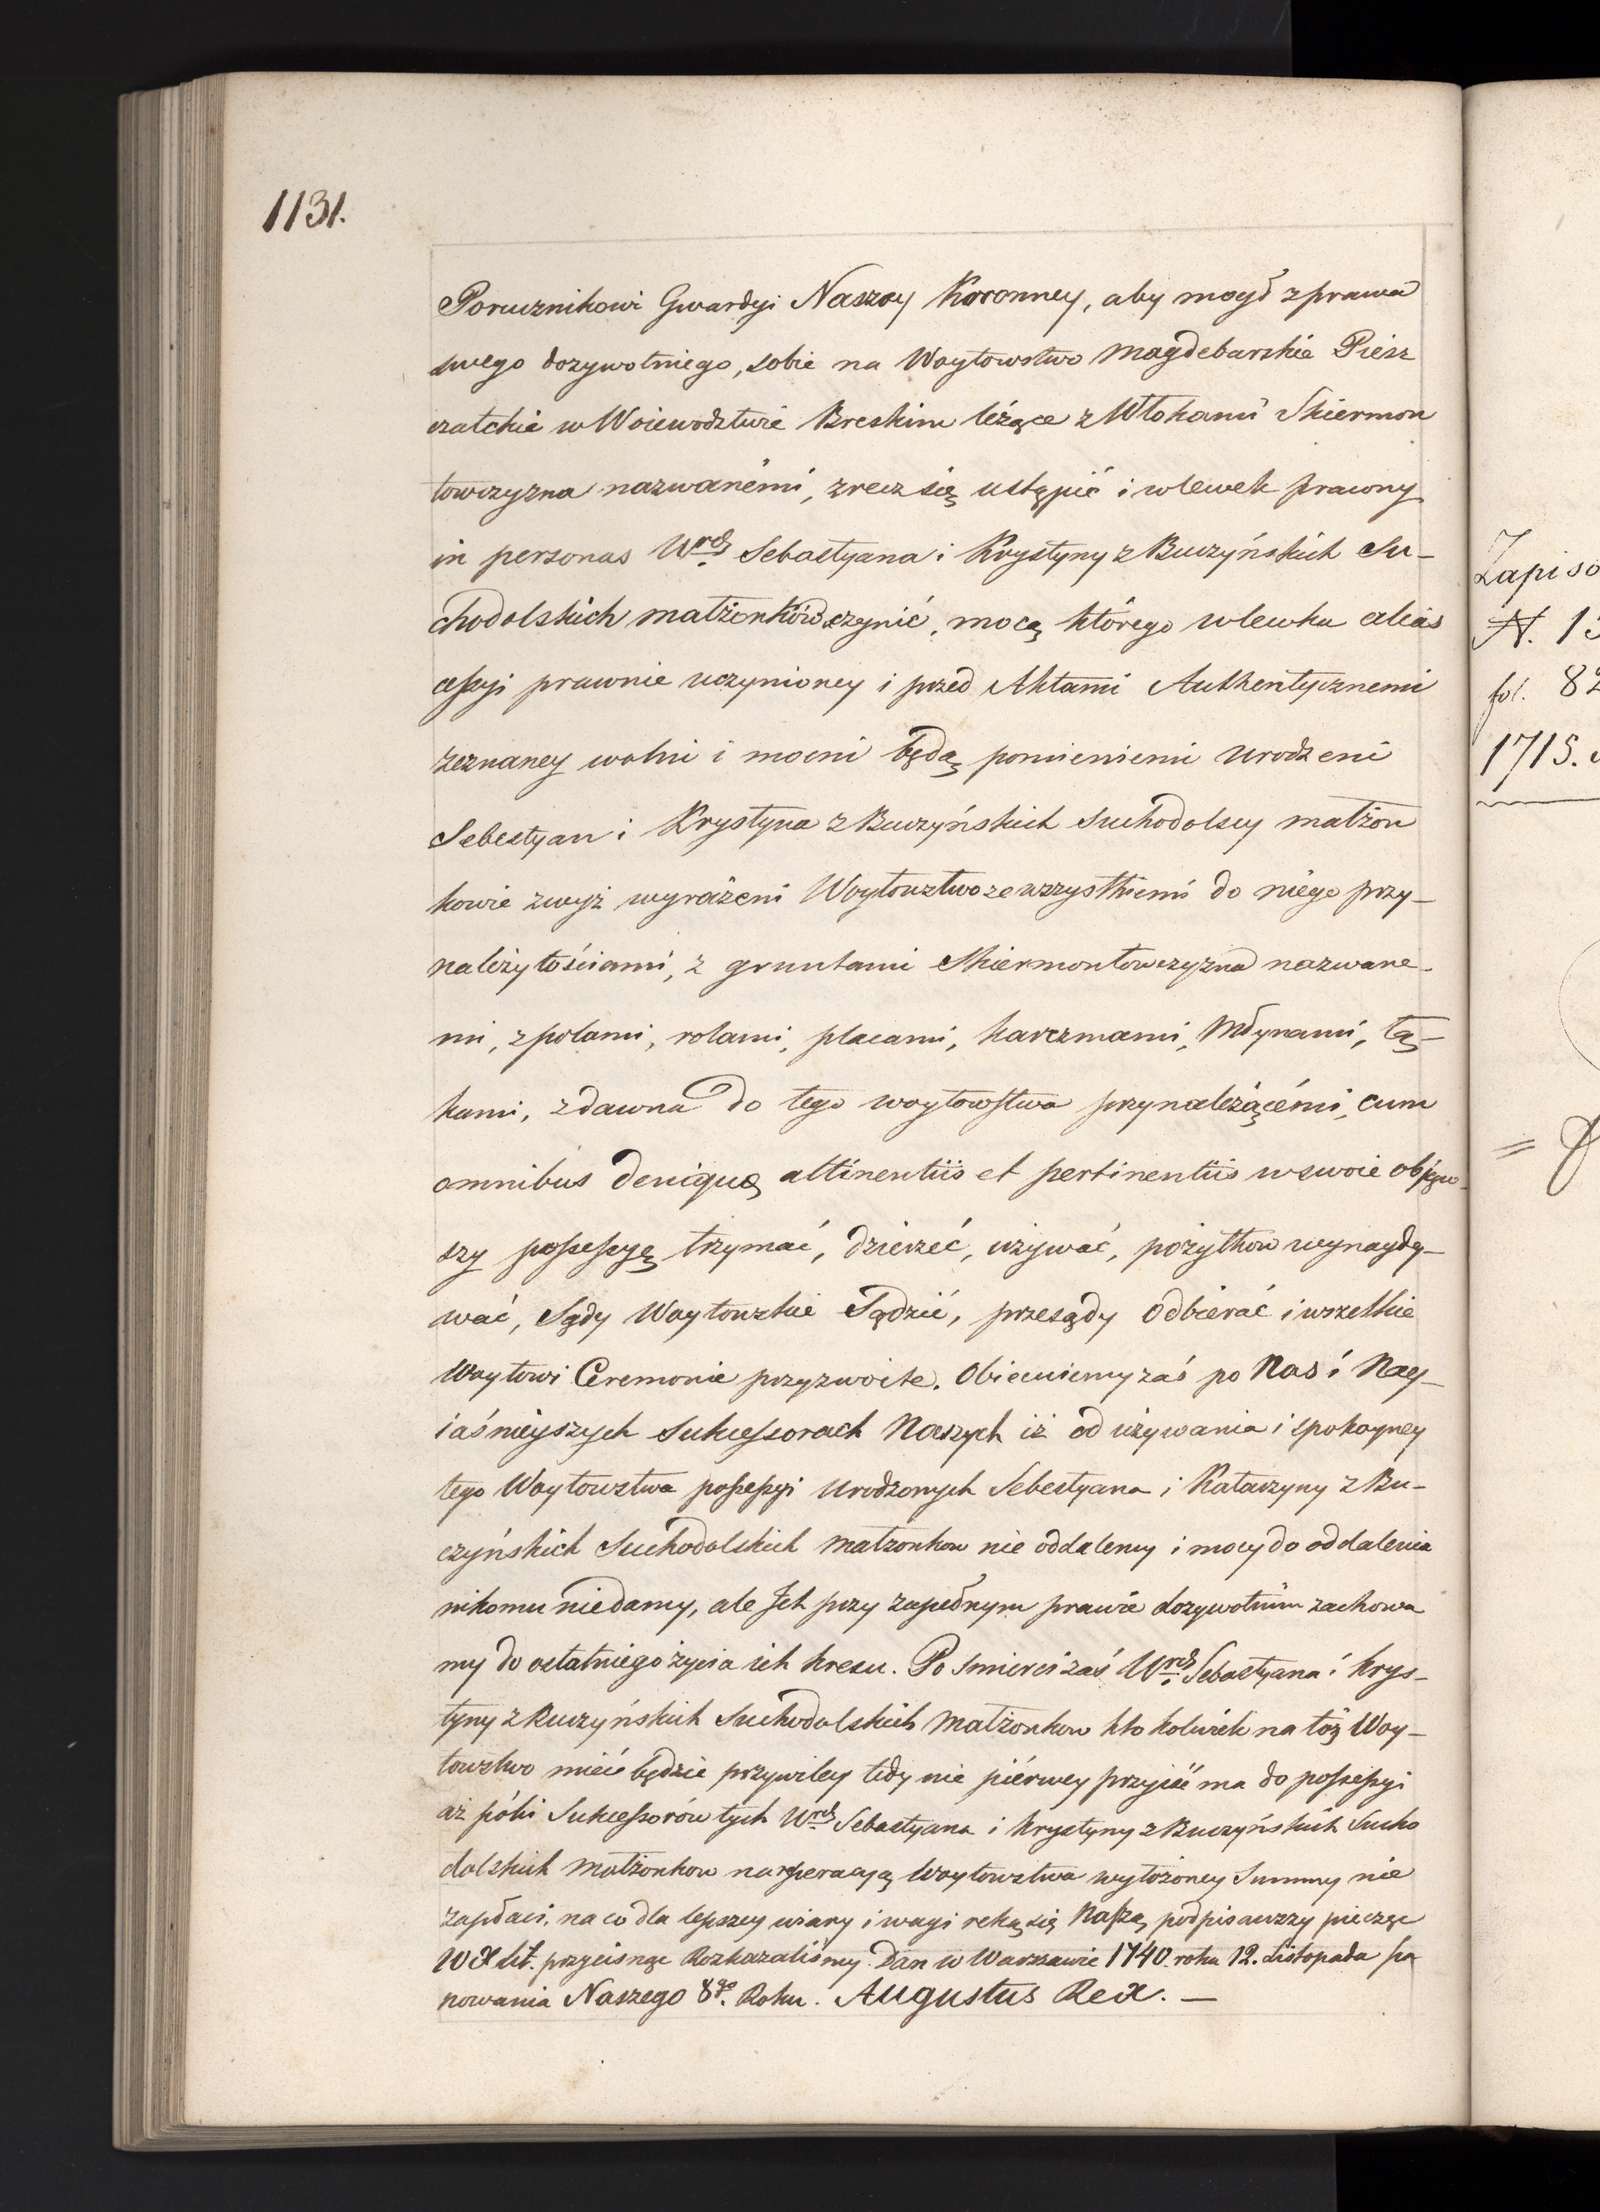 1131.
Porucznikowi Gwardyi Naszey Koronney, aby mogł z prawa
swego dozywotniego, sobie na Woytowstwo Magdeburskie Piesz
czatckie w Woiewodztwie Breskim leżące z Włokami Skiermon
towczyzna nazwanémi, zrecz się ustąpić i wlewek prawny
in personas Wrch Sebastyana i Krystyny z Buczyńskich Su-
chodolskich małżonków czynić, mocą którego wlewku alias
cessyi prawnie uczynioney i przed Aktami Authentycznemi
zeznaney wolni i mocni będą pomienieni urodzeni
Sebestyan i Krystyna z Buczyńskich Suchodolscy małżon
kowie zwyż wyrażeni Woytowstwo ze wszystkiemi do niego przy-
należytościami, z gruntami Skiermontowczyzna nazwane-
mi, z polami, rolami, placami, karczmami, Młynami, łą-
kami, zdawna do tego woytowstwa przynależącémi, cum
omnibus denique attinentiis et pertinentiis w swoie objąw-
szy possessyę trzymać, dzierżeć, używać, pożytkow wynaydy-
wać, Sądy Woytowskie Sądzić, przesądy odbierać i wszelkie
Woytowi Ceremonie przyzwoite. Obiecuiemy zaś po Nas i Nay-
iaśnieyszych Sukcessorach Naszych iż od używania i spokoyney
tego Woytowstwa possessyi urodzonych Sebestyana i Katarzyny z Bu-
czyńskich Suchodolskich małzonkow nie oddalemy i mocy do oddalenia
nikomu niedamy, ale Ich przy zupełnym prawie dozywotnim zachowa
my do ostatniego życia ich kresu. Po Smierci zaś Wrch Sebastyana i Krys-
tyny z Buczyńskich Suchodolskich Małżonkow kto kolwiek na toż Woy-
towstwo mieć będzie przywiley tedy nie piérwey przyiść ma do possessyi
aż póki Sukcessorów tych Wrch Sebastyana i Krystyny z Buczyńskich Sucho
dolskich Małżonkow na Woytowstwa wyłożoney Summy nie
zapłaci, na co dla lepszey wiary i wagi ręką się Naszą podpisawszy pieczęc
WX Lit. przycisnąc Rozkazaliśmy. Dan w Warszawie 1740. roku 12. Listopada pa
nowania Naszego 8go. Roku. Augustus Rex. —
Zapiso
N. 1
fol. 82
1715.